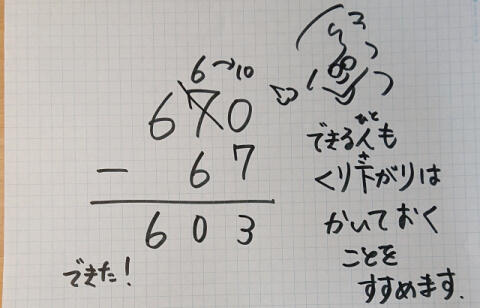 6→10
670
- 67
603
できた!
できる人も
ひと
くり下がりは
さ
かいておく
ことを
すすめます.